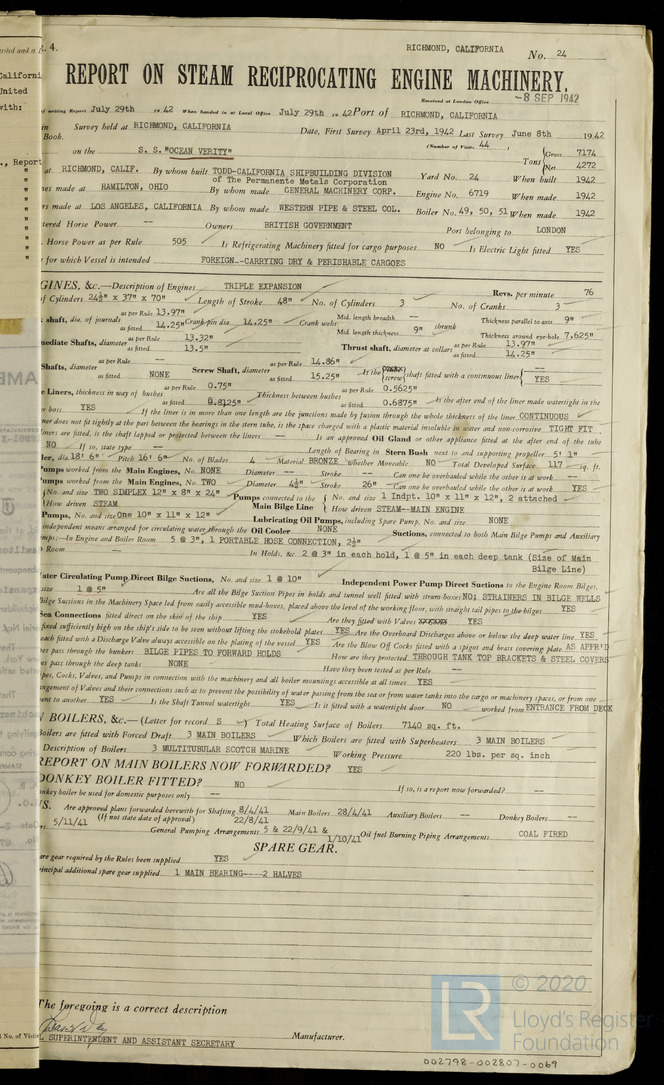 t. 4.
RICHMOND, CALIFORNIA
No. 24
REPORT ON STEAM RECIPROCATING ENGINE MACHINERY.
Received at London Office -8 SEP 1942
of writing Report July 29th 19 42 When handed in at Local Office July 29th 19 42 Port of RICHMOND, CALIFORNIA
in Survey held at RICHMOND, CALIFORNIA Date, First Survey April 23rd, 1942 Last Survey June 8th 19 42
Book. (Number of Visits 44
on the S. S. "OCEAN VERITY" Tons {Gross 7174
{Net 4272
at RICHMOND, CALIF. By whom built TODD-CALIFORNIA SHIPBUILDING DIVISION of The Permanente Metals Corporation Yard No. 24 When built 1942
es made at HAMILTON, OHIO By whom made GENERAL MACHINERY CORP. Engine No. 6719 When made 1942
rs made at LOS ANGELES, CALIFORNIA By whom made WESTERN PIPE & STEEL COL. Boiler No. 49, 50, 51 When made 1942
tered Horse Power -- Owners BRITISH GOVERNMENT Port belonging to LONDON
Horse Power as per Rule 505 Is Refrigerating Machinery fitted for cargo purposes NO Is Electric Light fitted YES
e for which Vessel is intended FOREIGN--CARRYING DRY & PERISHABLE CARGOES
GINES, &c.—Description of Engines TRIPLE EXPANSION Revs. per minute 76
of Cylinders 24½" x 37" x 70" Length of Stroke 48" No. of Cylinders 3 No. of Cranks 3
k shaft, dia. of journals as per Rule 13.97" as fitted 14.25" Crank pin dia. 14.25" Crank webs Mid. length breadth -- Mid. length thickness 9" shrunk Thickness parallel to axis 9" Thickness around eye-hole 7.625"
mediate Shafts, diameter as per Rule 13.32" as fitted 13.5" Thrust shaft, diameter at collars as per Rule 13.97" as fitted 14.25"
Shafts, diameter as per Rule -- as fitted NONE Screw Shaft, diameter as per Rule 14.86" as fitted 15.25" Is the {screw} shaft fitted with a continuous liner { YES
e Liners, thickness in way of bushes as per Rule 0.75" as fitted 0.8125" Thickness between bushes as per Rule 0.5625" as fitted 0.6875" Is the after end of the liner made watertight in the
er boss YES If the liner is in more than one length are the junctions made by fusion through the whole thickness of the liner CONTINUOUS
ner does not fit tightly at the part between the bearings in the stern tube, is the space charged with a plastic material insoluble in water and non-corrosive TIGHT FIT
liners are fitted, is the shaft lapped or protected between the liners -- Is an approved Oil Gland or other appliance fitted at the after end of the tube
NO If so, state type -- Length of Stern Bush next to and supporting propeller 5' 1"
ler, dia. 18' 6" Pitch 16' 6" No. of Blades 4 Material BRONZE whether Moveable NO Total Developed Surface 117 sq. ft.
Pumps worked from the Main Engines, No. NONE Diameter -- Stroke -- Can one be overhauled while the other is at work --
umps worked from the Main Engines, No. TWO Diameter 4½" Stroke 26" Can one be overhauled while the other is at work YES
{No. and size TWO SIMPLEX 12" x 8" x 24" Pumps connected to the { No. and size 1 Indpt. 10" x 11" x 12", 2 attached
{How driven STEAM Main Bilge Line { How driven STEAM--MAIN ENGINE
Pumps, No. and size One 10" x 11" x 12" Lubricating Oil Pumps, including Spare Pump, No. and size NONE
independent means arranged for circulating water through the Oil Cooler NONE Suctions, connected to both Main Bilge Pumps and Auxiliary
mps:—In Engine and Boiler Room 5 @ 3", 1 PORTABLE HOSE CONNECTION, 2½"
Room -- In Holds, &c. 2 @ 3" in each hold, 1 @ 5" in each deep tank (Size of Main
Bilge Line)
ater Circulating Pump Direct Bilge Suctions, No. and size 1 @ 10" Independent Power Pump Direct Suctions to the Engine Room Bilges,
size 1 @ 5" Are all the Bilge Suction Pipes in holds and tunnel well fitted with strum-boxes NO; STRAINERS IN BILGE WELLS
Bilge Suctions in the Machinery Space led from easily accessible mud-boxes, placed above the level of the working floor, with straight tail pipes to the bilges YES
Sea Connections fitted direct on the skin of the ship YES Are they fitted with Valves YES
fixed sufficiently high on the ship's side to be seen without lifting the stokehold plates YES Are the Overboard Discharges above or below the deep water line YES
each fitted with a Discharge Valve always accessible on the plating of the vessel YES Are the Blow Off Cocks fitted with a spigot and brass covering plate AS APPR'D
es pass through the bunkers BILGE PIPES TO FORWARD HOLDS How are they protected THROUGH TANK TOP BRACKETS & STEEL COVERS
es pass through the deep tanks NONE Have they been tested as per Rule --
pes, Cocks, Valves, and Pumps in connection with the machinery and all boiler mountings accessible at all times YES
angement of Valves and their connections such as to prevent the possibility of water passing from the sea or from water tanks into the cargo or machinery spaces, or from one
ent to another YES Is the Shaft Tunnel watertight YES Is it fitted with a watertight door NO worked from ENTRANCE FROM DECK
BOILERS, &c.—(Letter for record S ) Total Heating Surface of Boilers 7140 sq. ft.
oilers are fitted with Forced Draft 3 MAIN BOILERS Which Boilers are fitted with Superheaters 3 MAIN BOILERS
Description of Boilers 3 MULTITUBULAR SCOTCH MARINE Working Pressure 220 lbs. per sq. inch
REPORT ON MAIN BOILERS NOW FORWARDED? YES
DONKEY BOILER FITTED? NO If so, is a report now forwarded? --
nkey boiler be used for domestic purposes only --
S. Are approved plans forwarded herewith for Shafting 8/4/41 22/8/41 Main Boilers 28/4/41 Auxiliary Boilers -- Donkey Boilers --
(If not state date of approval)
5/11/41 General Pumping Arrangements 5 & 22/9/41 & 1/10/41 Oil fuel Burning Piping Arrangements COAL FIRED
SPARE GEAR.
are gear required by the Rules been supplied YES
rincipal additional spare gear supplied 1 MAIN BEARING----2 HALVES
The foregoing is a correct description
L SUPERINTENDENT AND ASSISTANT SECRETARY Manufacturer.
© 2020
LR
Lloyd's Register
Foundation
002798-002807-0069